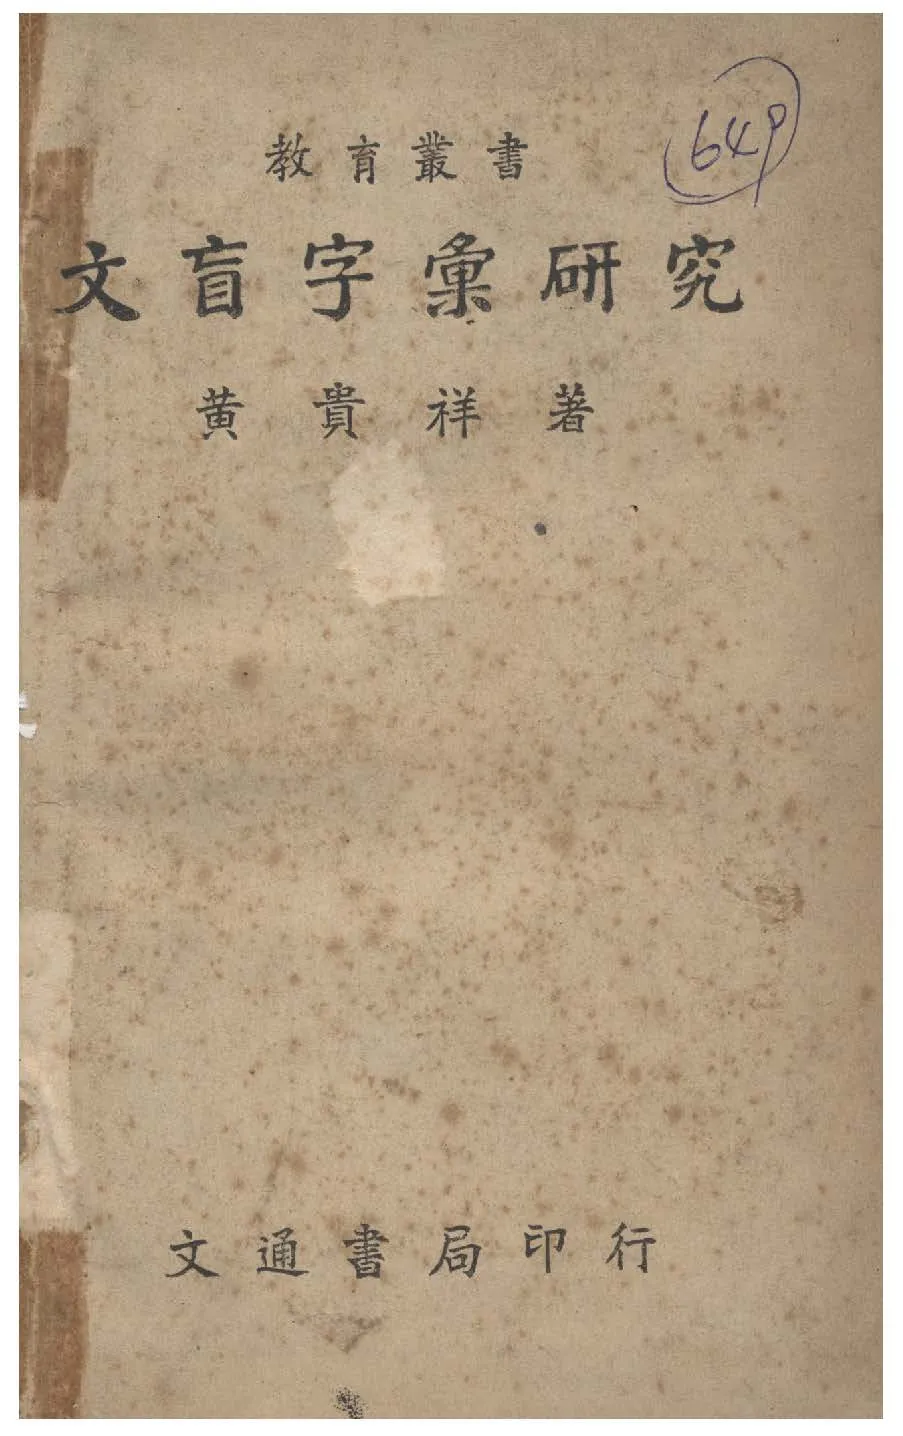 649
教育叢書
文盲字彙研究
黄貴祥著
文通書局印行